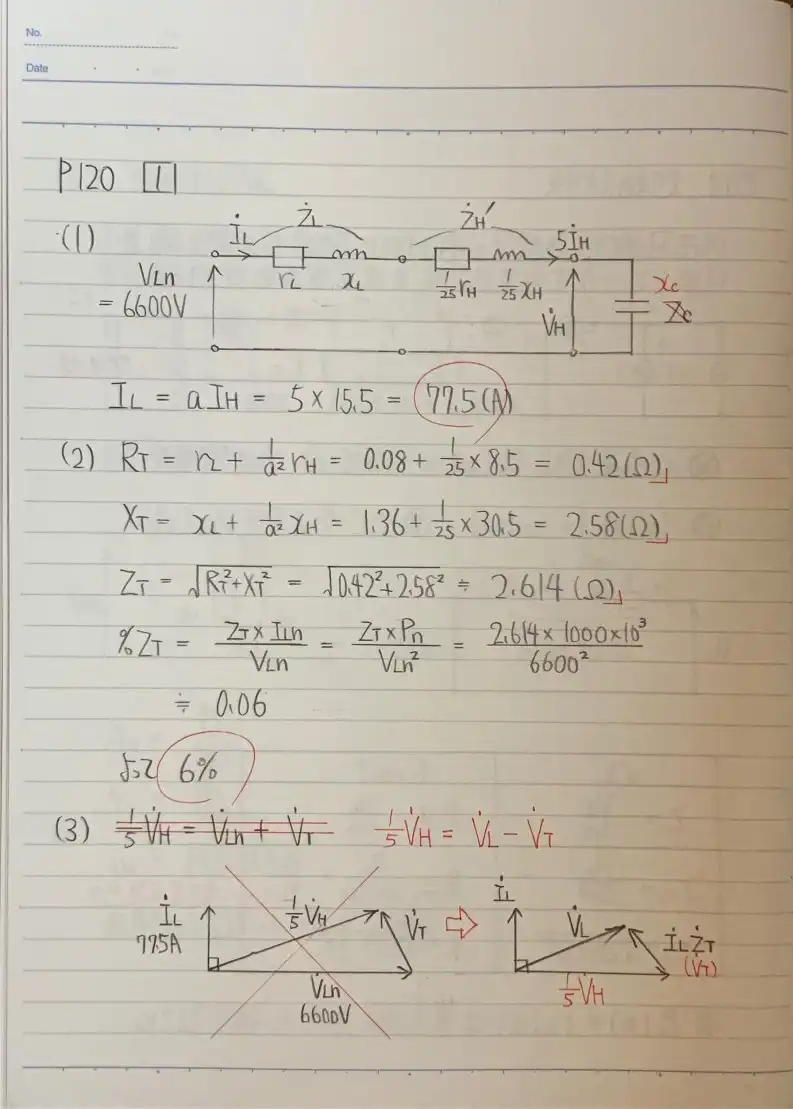 No.
Date
P120 1
(1)
İL ŻL ŻH' 5İH
VLn = 6600V
rL xL 1/25 rH 1/25 xH V̇H xc
IL = aIH = 5 × 15.5 = 77.5(A)
(2) RT = rL + 1/a² rH = 0.08 + 1/25 × 8.5 = 0.42(Ω)
XT = xL + 1/a² xH = 1.36 + 1/25 × 30.5 = 2.58(Ω)
ZT = √RT²+XT² = √0.42²+2.58² ≒ 2.614(Ω)
%ZT = ZT×ILn/VLn = ZT×Pn/VLn² = 2.614×1000×10³/6600²
≒ 0.06
よって 6%
(3) 1/5 V̇H = V̇Ln + V̇T 1/5 V̇H = V̇L − V̇T
İL 77.5A 1/5 V̇H V̇T ⇨ İL V̇L İLŻT (V̇T)
V̇Ln 6600V 1/5 V̇H